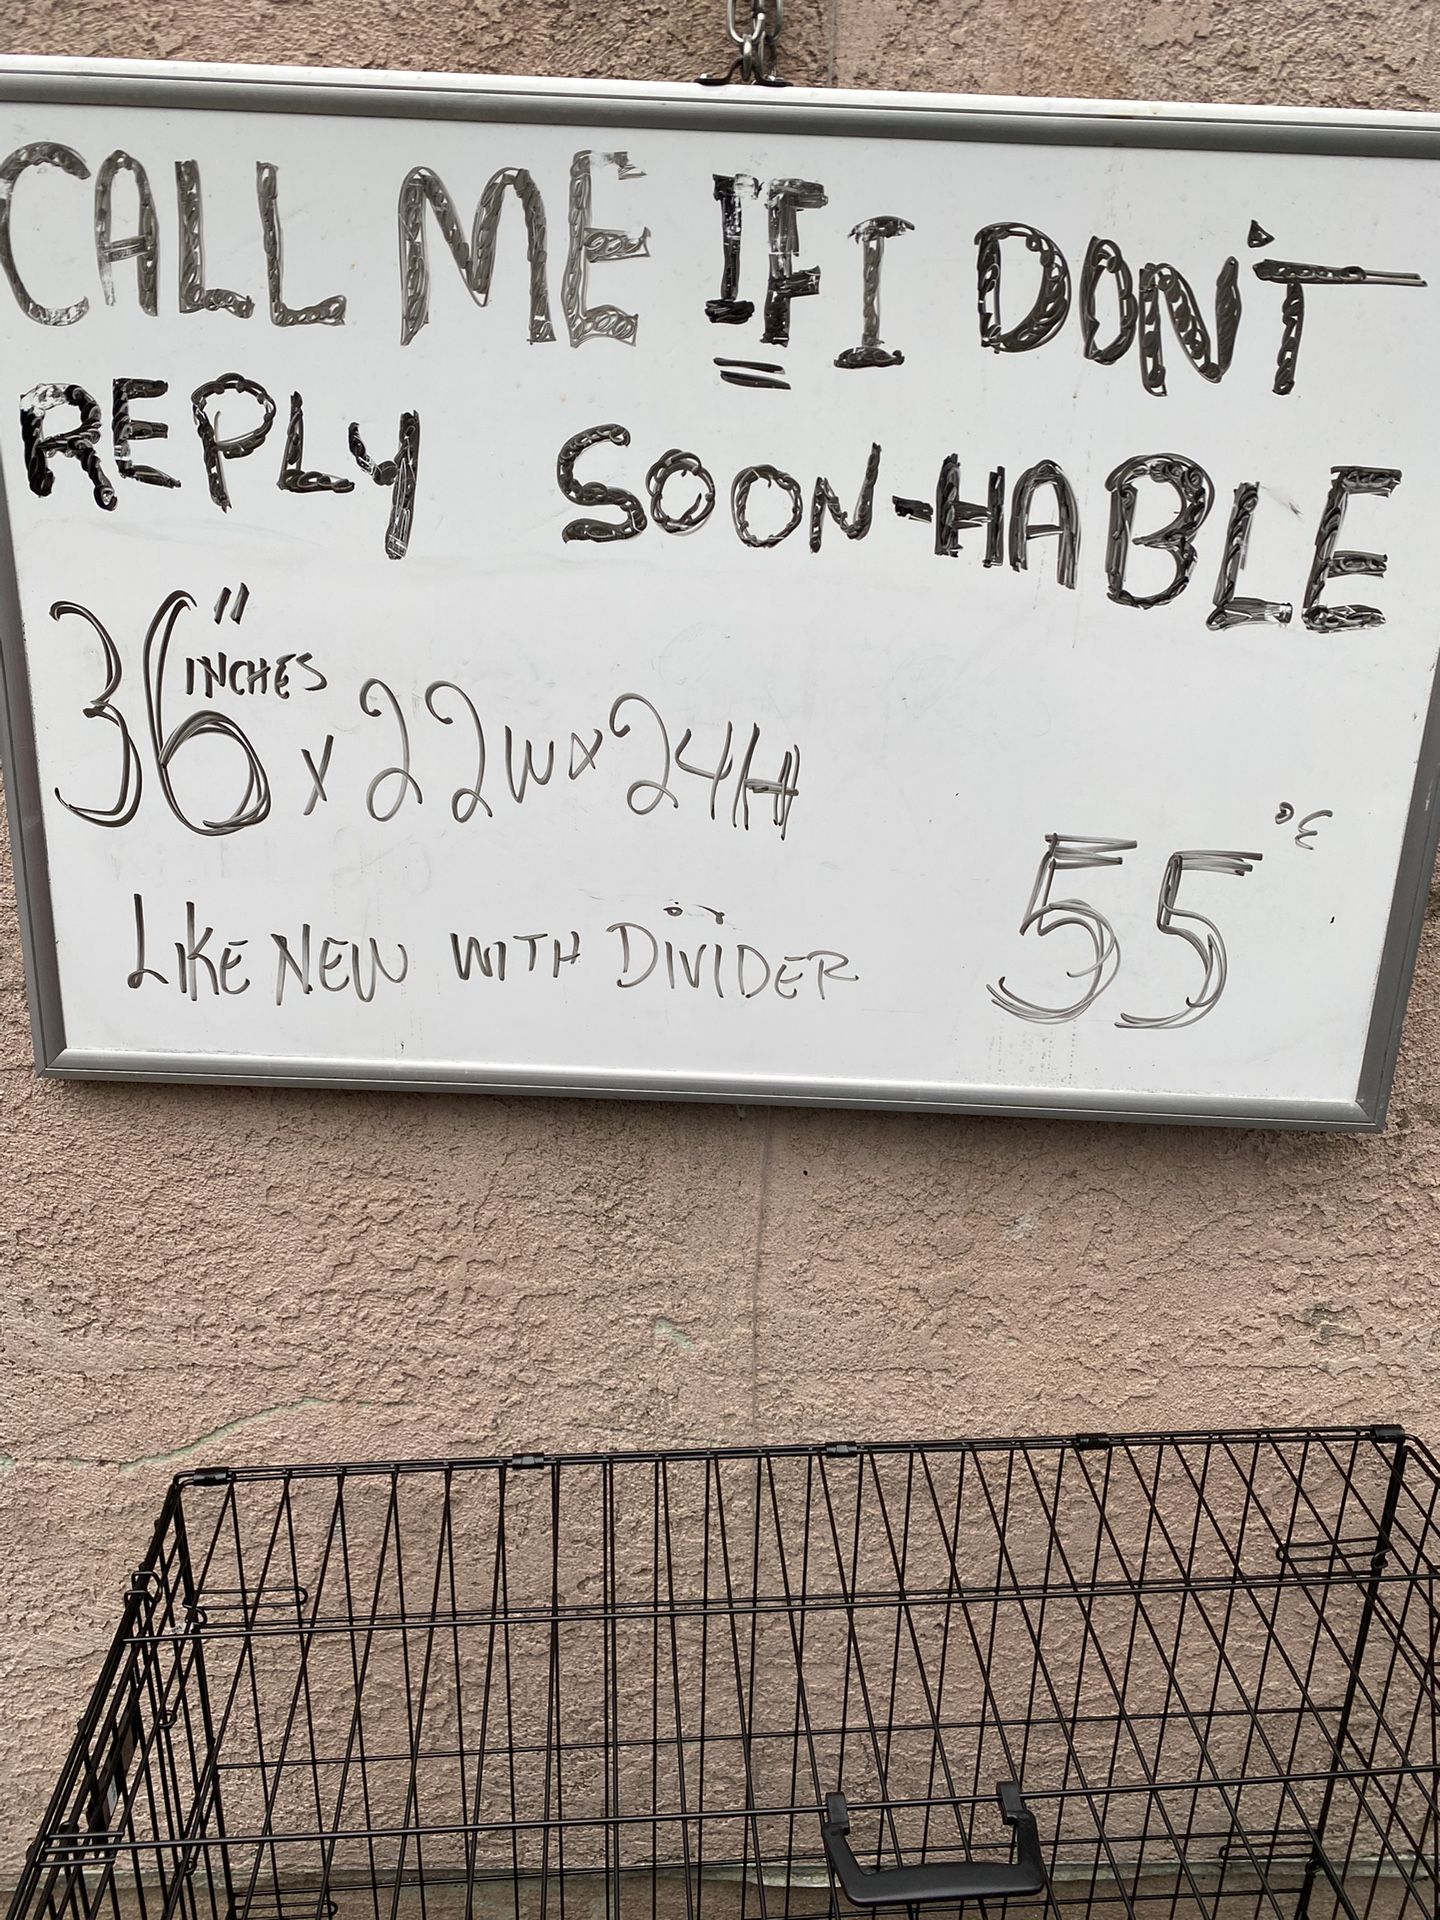 CALL ME IF I DON'T
REPLY SOON-HABLE
36" INCHES x 22W x 24H
LIKE NEW WITH DIVIDER
55